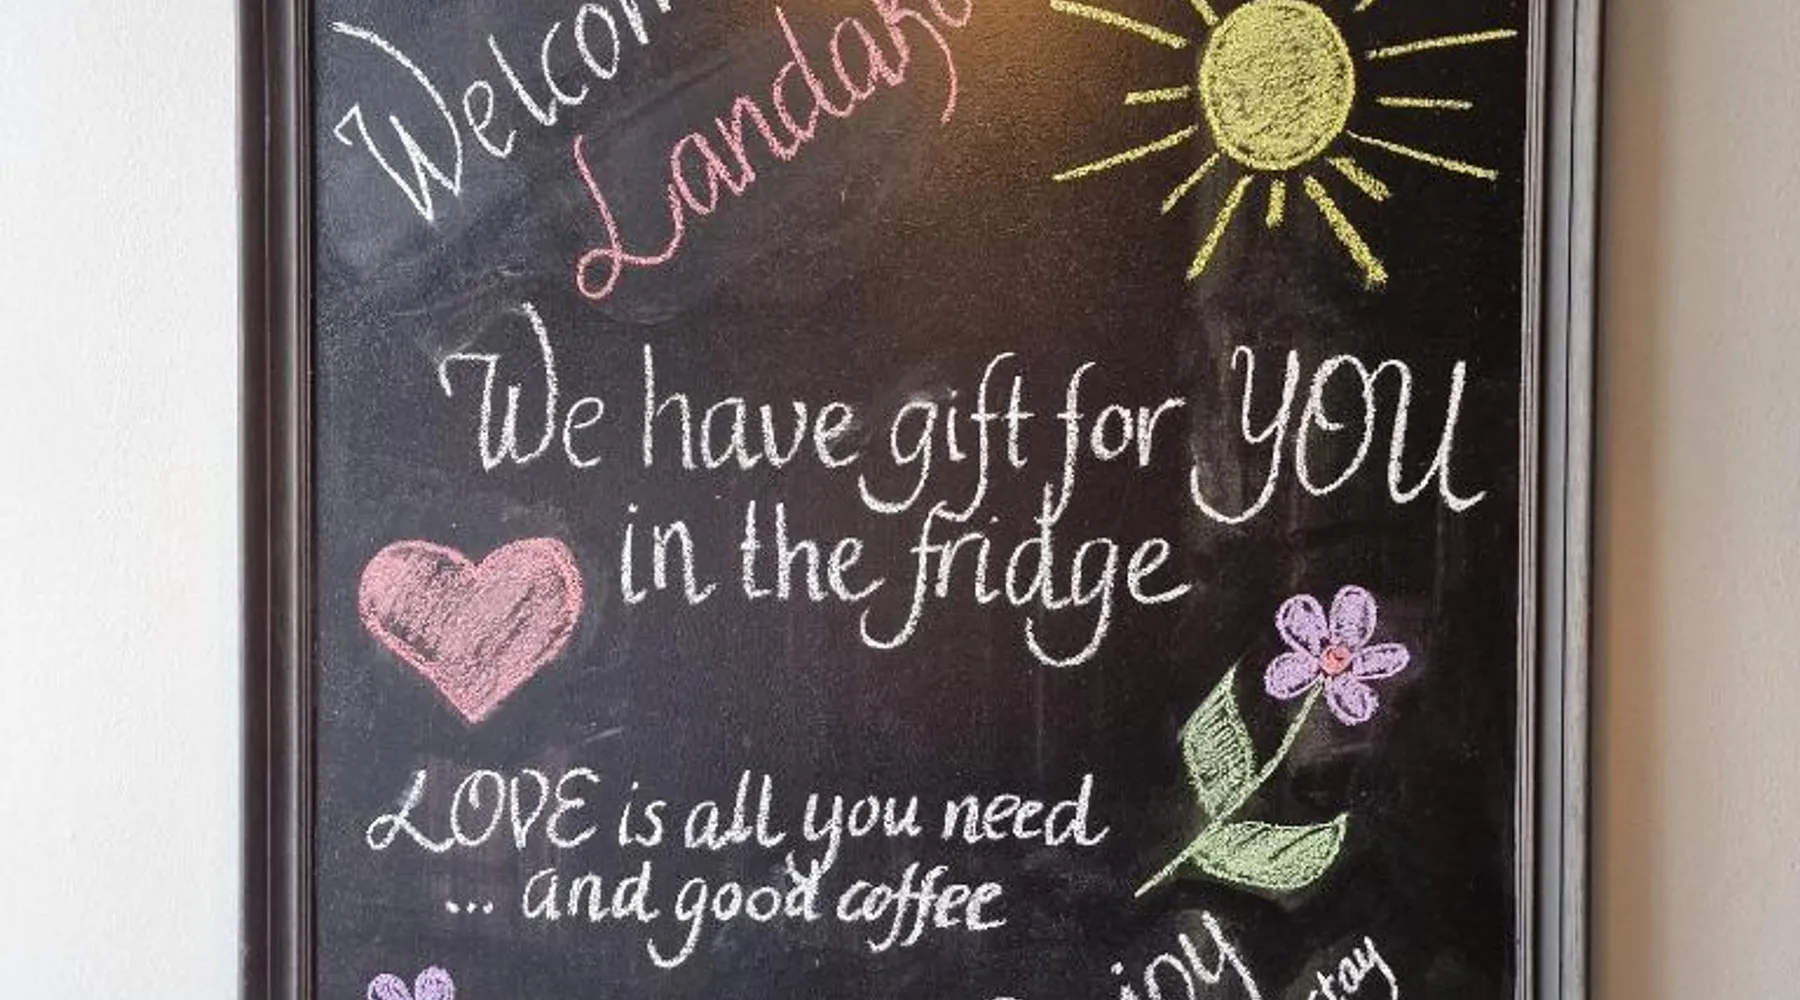 Welcom
Landak
We have gift for YOU
in the fridge
LOVE is all you need
... and good coffee
joy
stay